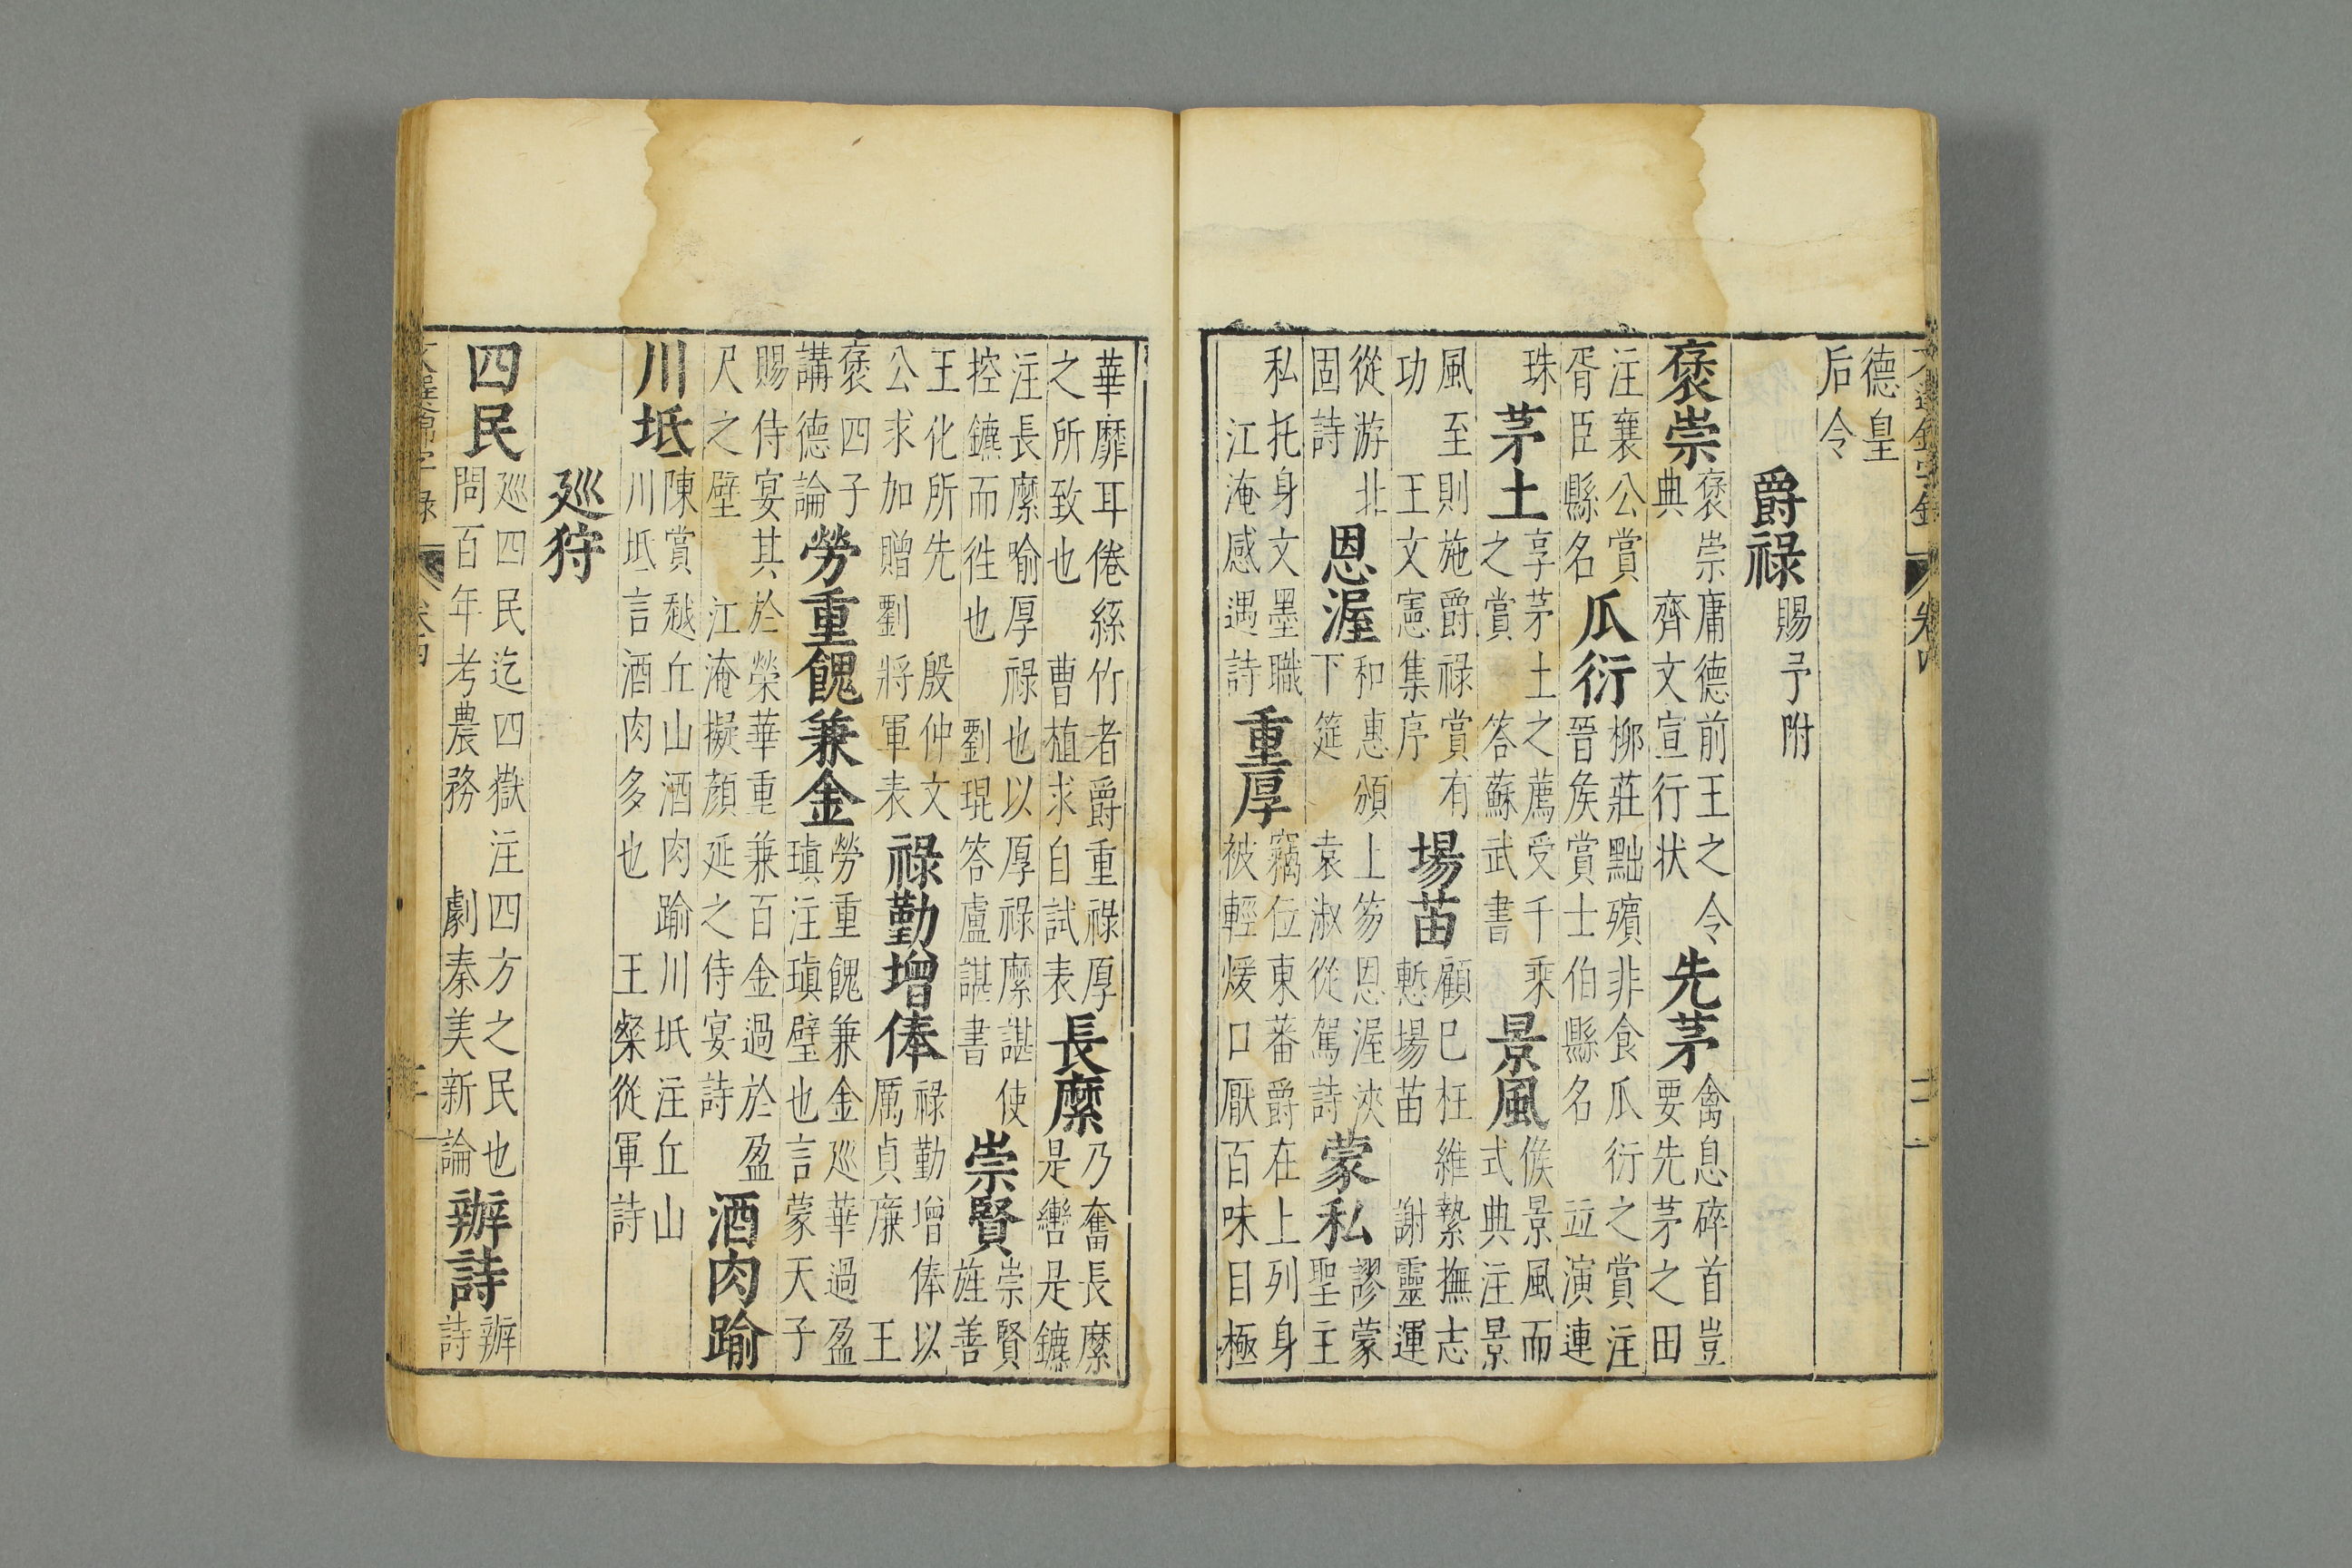 德皇后令
爵祿 賜予附
褒崇 褒崇庸德前王之令典 齊文宣行状 先茅 禽息碎首豈要先茅之田
注襄公賞胥臣縣名 瓜衍 柳莊黜殯非食瓜衍之賞注晉矦賞士伯縣名 竝演連
珠 茅土 享茅土之薦受千乘之賞 答蘇武書 景風 候景風而式典注景
風至則施爵祿賞有功 王文憲集序 場苗 顧已枉維縶撫志慙場苗 謝靈運
從游北固詩 恩渥 和惠頒上笏恩渥浹下筵 袁淑從駕詩 蒙私 謬蒙聖主
私托身文墨職 江淹感遇詩 重厚 竊位東蕃爵在上列身被輕煖口厭百味目極
華靡耳倦絲竹者爵重祿厚之所致也 曹植求自試表 長縻 乃奮長縻是轡是鑣
注長縻喻厚祿也以厚祿縻諶使控鑣而徃也 劉琨答盧諶書 崇賢 崇賢旌善
王化所先 殷仲文公求加贈劉將軍表 祿勤增俸 祿勤增俸以厲貞廉 王
褒四子講德論 勞重餽兼金 勞重餽兼金廵華過盈瑱注瑱璧也言蒙天子
賜侍宴其於榮華重兼百金過於盈尺之璧 江淹擬顏延之侍宴詩 酒肉踰
川坻 陳賞越丘山酒肉踰川坻注丘山川坻言酒肉多也 王粲從軍詩
廵狩
四民 廵四民迄四嶽注四方之民也問百年考農務 劇秦美新論 辦詩 辦詩
文選錦字錄 卷四